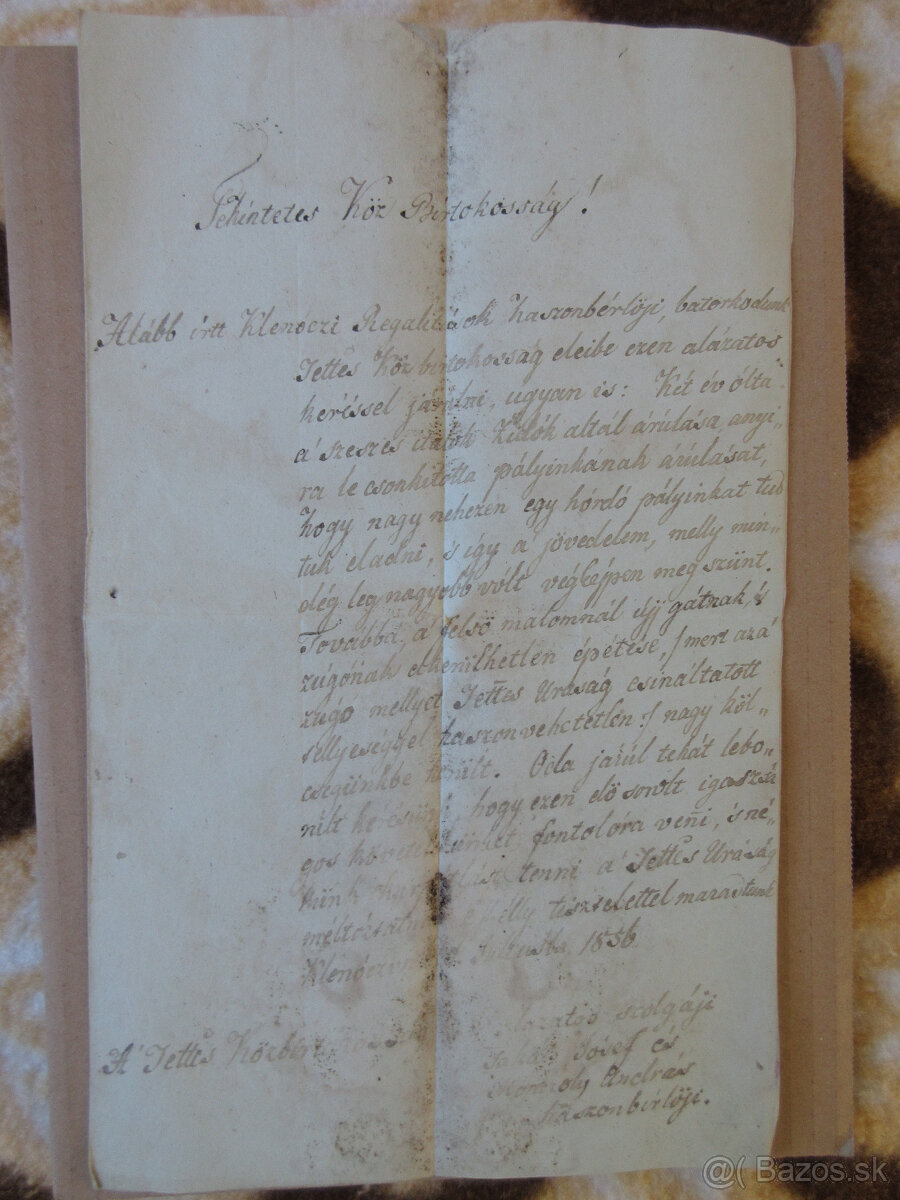 Tekintetes Köz Birtokosság!
Alább írtt Klenóczi Regalitások haszonbérlöji, batorkodunk
Tettes Köz birtokosság eleibe ezen alázatos
keréssel járulni, ugyan is: Két év ólta
a' szeszes italok Zsidók altál árúlása, anyi-
ra le csonkitotta pályinkának árúlását,
hogy nagy nehezen egy hórdó pályinkat tud
tuk eladni, 's így a' jövedelem, melly min-
dég leg nagyobb vólt végképen meg szünt.
Továbbá, a' felsö malomnál új gátnak, 's
zúgónak elkerülhetlen épétése, /: mert az a'
zugo mellyet Tettes Uraság csináltatott
sellyeséggel haszonvehetetlen :/ nagy köl-
cségünkbe került. Oda járúl tehát lebo-
rúlt kerésünk hogy ezen elö sorolt igazsá
gos követelésünket fontolóra venni, 's né-
künk tenni a' Tettes Uraság
mélly tisztelettel maradtunk
Klenóczi 1836
A' Tettes Közbirtokosság
Alázatos szolgáji
Jósef és
András
haszonbérlöji.
@( Bazos.sk